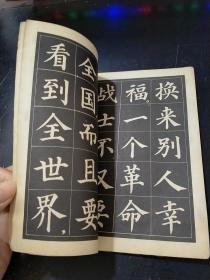 换来别人幸
福，一个革命
战士不仅
全国，而且要
看到全世界，